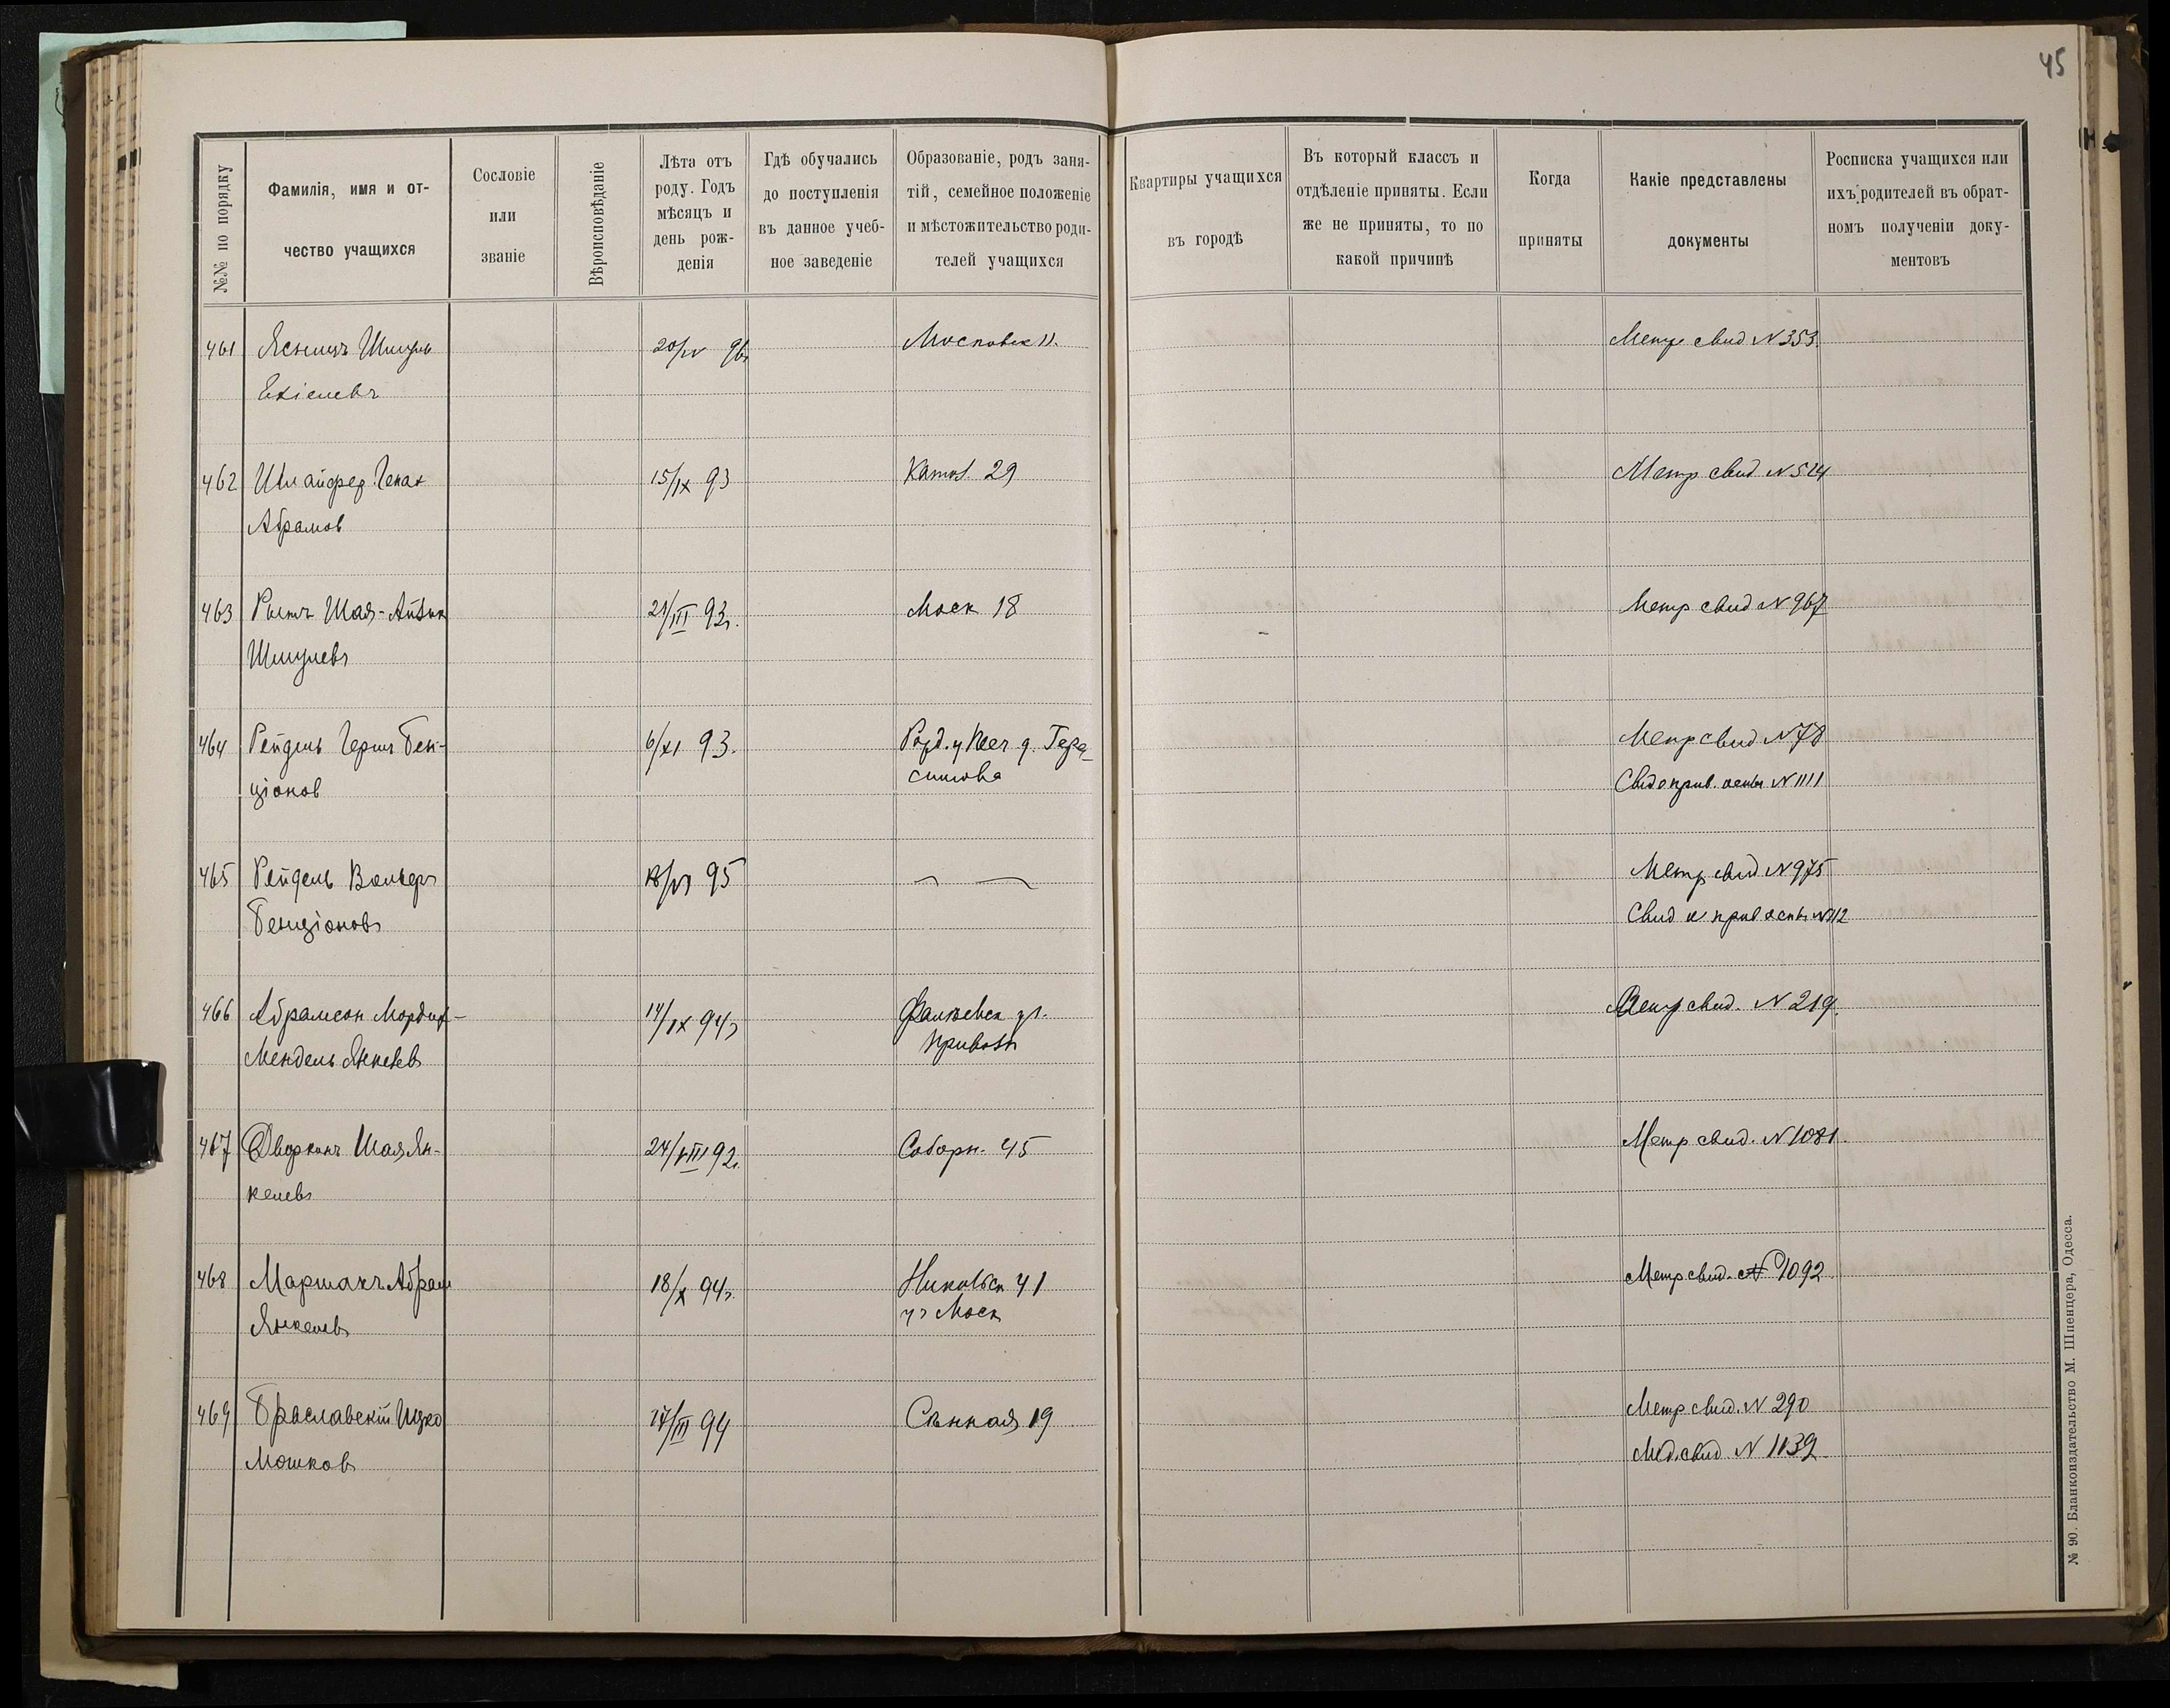 45
№№ по порядку
Фамилія, имя и от-
чество учащихся
Сословіе
или
званіе
Вѣроисповѣданіе
Лѣта отъ
роду. Годъ
мѣсяцъ и
день рож-
денія
Гдѣ обучались
до поступленія
въ данное учеб-
ное заведеніе
Образованіе, родъ заня-
тій, семейное положеніе
и мѣстожительство роди-
телей учащихся
Квартиры учащихся
въ городѣ
Въ который классъ и
отдѣленіе приняты. Если
же не приняты, то по
какой причинѣ
Когда
приняты
Какіе представлены
документы
Росписка учащихся или
ихъ родителей въ обрат-
номъ полученіи доку-
ментовъ
461 Шмуль 20/IV 96г Московск 11. Метр свид N 353.
Ехіелевъ
462 15/IX 93 Катк. 29 Метр свид N 514
Абрамов
463 Шая-Айзик 21/III 93г. Моск 18 Метр свид N 967
Шмулевъ
464 Рейдель Герш Бен- 6/XI 93. Гера- Метр свид N 78
ціонов симова Свид о прив. оспы N 1111
465 Рейдель Вольфъ 18/VI 95 Метр свид N 975
Бенціоновъ Свид о прив оспы N 1112
466 Абрамсон Мордух- 14/IX 94г Метр свид. N 219.
Мендель Янкелев Привозъ
467 Дворкинъ Шая Ян- 24/VIII 92г. Соборн. 45 Метр свид. N 1081.
келевъ
468 Маршакъ Абрам 18/X 94г. Никольск 41 Метр свид. N 1092.
Янкелевъ уг Моск
469 Браславскій Ицко 17/III 94 Сѣнная 19 Метр свид. N 290
Мошковъ Мед. свид. N 1139.
№ 90. Бланкоиздательство М. Шпенцера, Одесса.